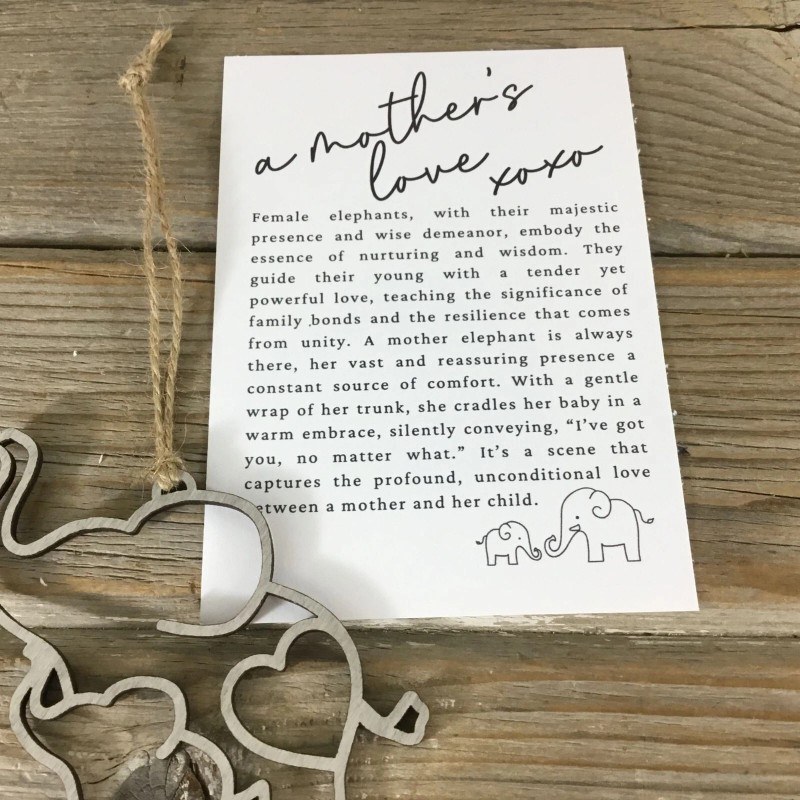 a mother's
love xoxo
Female elephants, with their majestic
presence and wise demeanor, embody the
essence of nurturing and wisdom. They
guide their young with a tender yet
powerful love, teaching the significance of
family bonds and the resilience that comes
from unity. A mother elephant is always
there, her vast and reassuring presence a
constant source of comfort. With a gentle
wrap of her trunk, she cradles her baby in a
warm embrace, silently conveying, “I’ve got
you, no matter what.” It’s a scene that
captures the profound, unconditional love
etween a mother and her child.